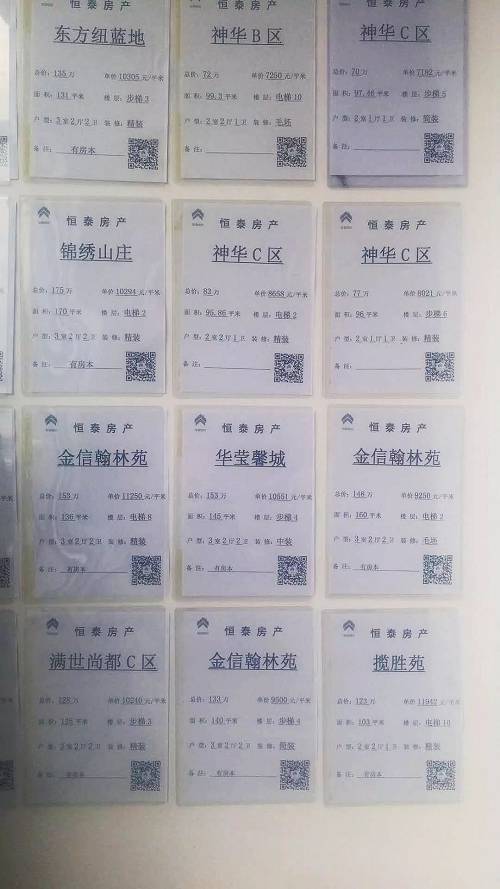 恒泰房产
东方纽蓝地
总价：135万 单价10305元/平米
面积：131平米 楼层：步梯3
户型：3室2厅2卫 装修：精装
备注： 有房本
恒泰房产
神华B区
总价：72万 单价7250元/平米
面积：99.3平米 楼层：电梯10
户型：2室2厅1卫 装修：毛坯
备注：
恒泰房产
神华C区
总价：70万 单价7182元/平米
面积：97.46平米 楼层：步梯5
户型：2室1厅1卫 装修：简装
备注：
恒泰房产
锦绣山庄
总价：175万 单价10294元/平米
面积：170平米 楼层：电梯2
户型：3室2厅2卫 装修：精装
备注： 有房本
恒泰房产
神华C区
总价：83万 单价8658元/平米
面积：95.86平米 楼层：电梯2
户型：2室2厅1卫 装修：精装
备注：
恒泰房产
神华C区
总价：77万 单价8021元/平米
面积：96平米 楼层：步梯6
户型：2室1厅1卫 装修：精装
备注：
恒泰房产
金信翰林苑
总价：153万 单价11250元/平米
面积：136平米 楼层：电梯8
户型：3室2厅2卫 装修：精装
备注： 有房本
恒泰房产
华莹馨城
总价：153万 单价10551元/平米
面积：145平米 楼层：步梯4
户型：3室2厅2卫 装修：中装
备注： 有房本
恒泰房产
金信翰林苑
总价：148万 单价9250元/平米
面积：160平米 楼层：电梯2
户型：3室2厅2卫 装修：毛坯
备注： 有房本
恒泰房产
满世尚都C区
总价：128万 单价10240元/平米
面积：125平米 楼层：步梯3
户型：3室2厅2卫 装修：精装
备注： 有房本
恒泰房产
金信翰林苑
总价：133万 单价9500元/平米
面积：140平米 楼层：步梯4
户型：3室2厅2卫 装修：简装
备注： 有房本
恒泰房产
揽胜苑
总价：123万 单价11942元/平米
面积：103平米 楼层：电梯10
户型：2室2厅1卫 装修：精装
备注： 有房本